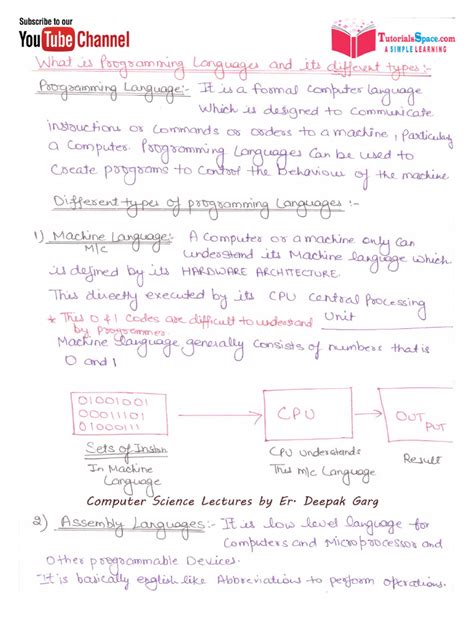 Subscribe to our
YouTube Channel
TutorialsSpace.com
A SIMPLE LEARNING
What is Programming Languages and its different types:-
Programming Language:- It is a formal computer language
which is designed to communicate
instructions or commands or orders to a machine, Particularly
a Computer. Programming Languages can be used to
Create programs to control the Behaviour of the machine
Different types of programming Languages :-
1) Machine Language:- A Computer or a machine only can
M/c
understand its Machine language which
is defined by its HARDWARE ARCHITECTURE.
This directly executed by its CPU Central Processing
Unit
* This 0 & 1 Codes are difficult to understand
by programmer.
Machine language generally consists of numbers that is
0 and 1
01001001
00011101
01000111
CPU
OUT
PUT
Sets of Instrn
In Machine
Language
CPU understands
This M/c Language
Result
Computer Science Lectures by Er. Deepak Garg
2) Assembly Languages:- It is low level language for
Computers and Microprocessor and
Other programmable Devices.
It is basically english like Abbreviations to perform operations.